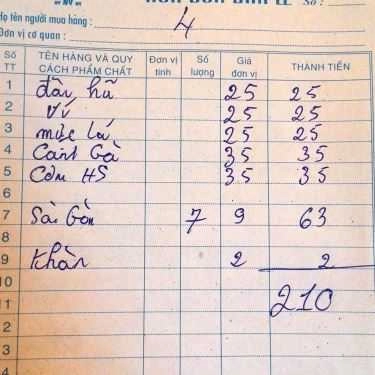 HÓA ĐƠN BÁN LẺ Số :
Họ tên người mua hàng : 4
Đơn vị cơ quan :
Số TT TÊN HÀNG VÀ QUY CÁCH PHẨM CHẤT Đơn vị tính Số lượng Giá đơn vị THÀNH TIỀN
1 đầu hũ 25 25
2 Ví 25 25
3 mực lá 25 25
4 Cánh Gà 35 35
5 Cơm HS 35 35
6
7 Sài Gòn 7 9 63
8
9 Khăn 2 2
10 210
11
2
3
4